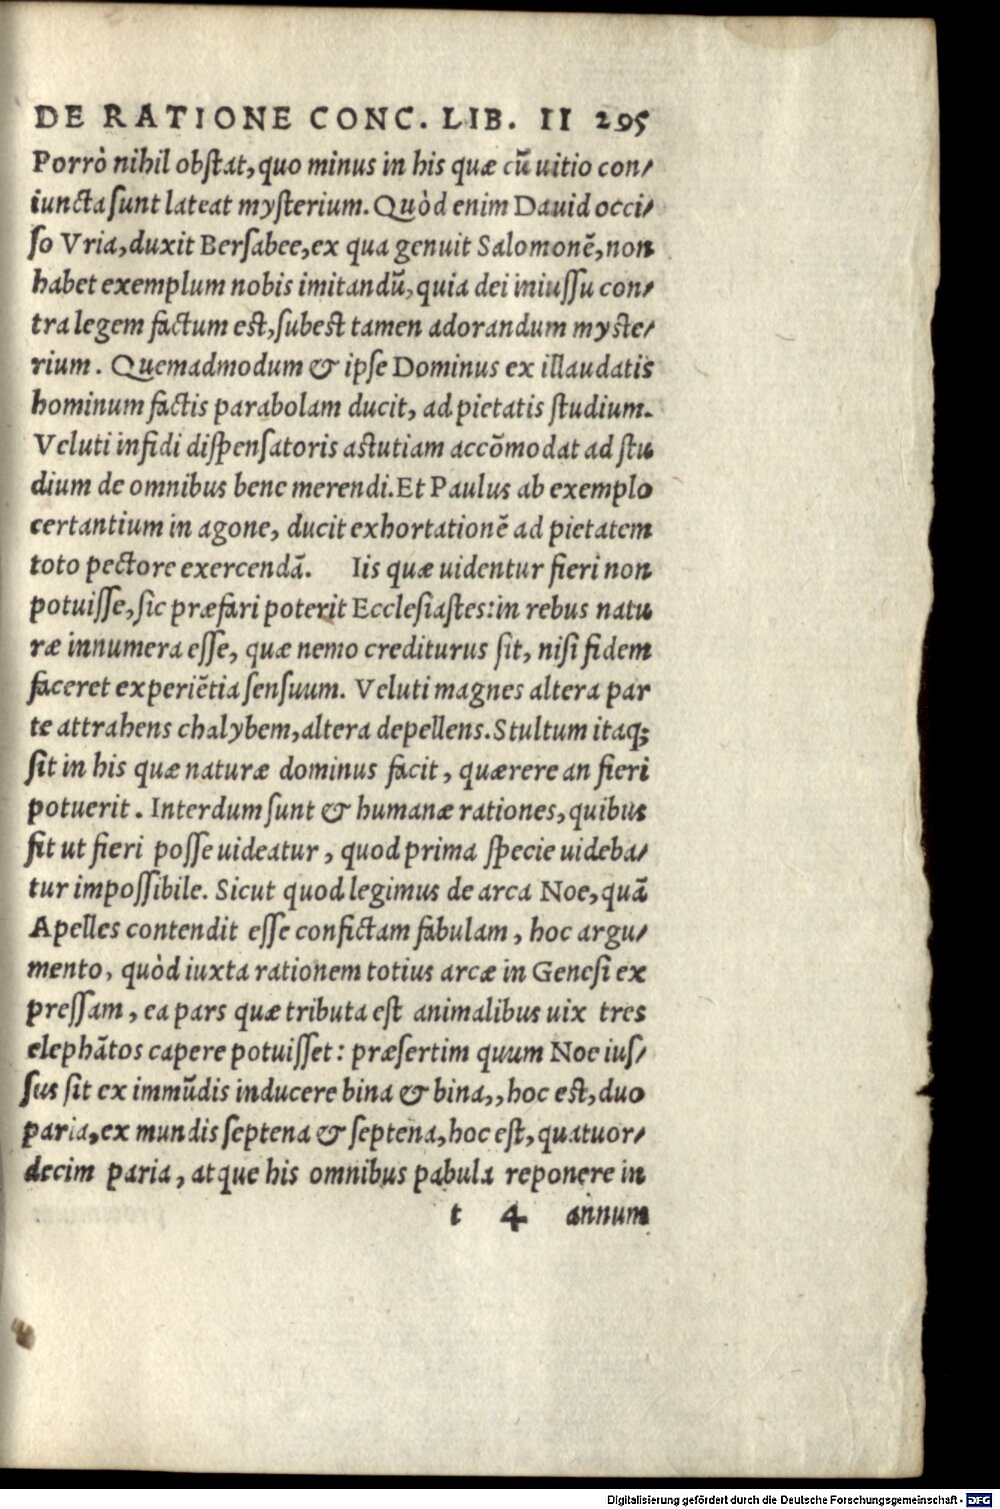 DE RATIONE CONC. LIB. II 295
Porrò nihil obstat, quo minus in his quæ cũ uitio con/
iuncta sunt lateat mysterium. Quòd enim Dauid occi/
so Vria, duxit Bersabee, ex qua genuit Salomonẽ, non
habet exemplum nobis imitandũ, quia dei iniussu con/
tra legem factum est, subest tamen adorandum myste/
rium. Quemadmodum & ipse Dominus ex illaudatis
hominum factis parabolam ducit, ad pietatis studium.
Veluti infidi dispensatoris astutiam accõmodat ad stu
dium de omnibus bene merendi. Et Paulus ab exemplo
certantium in agone, ducit exhortationẽ ad pietatem
toto pectore exercendã. Iis quæ uidentur fieri non
potuisse, sic præfari poterit Ecclesiastes: in rebus natu
ræ innumera esse, quæ nemo crediturus sit, nisi fidem
faceret experiẽtia sensuum. Veluti magnes altera par
te attrahens chalybem, altera depellens. Stultum itaq;
sit in his quæ naturæ dominus facit, quærere an fieri
potuerit. Interdum sunt & humanæ rationes, quibus
fit ut fieri posse uideatur, quod prima specie uideba/
tur impossibile. Sicut quod legimus de arca Noe, quã
Apelles contendit esse confictam fabulam, hoc argu/
mento, quòd iuxta rationem totius arcæ in Genesi ex
pressam, ea pars quæ tributa est animalibus uix tres
elephãtos capere potuisset: præsertim quum Noe ius/
sus sit ex immũdis inducere bina & bina,, hoc est, duo
paria, ex mundis septena & septena, hoc est, quatuor/
decim paria, atque his omnibus pabula reponere in
t 4 annum
Digitalisierung gefördert durch die Deutsche Forschungsgemeinschaft - DFG